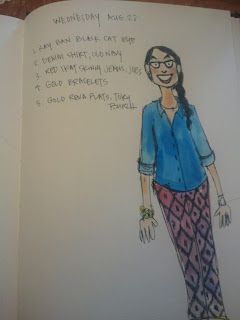 WEDNESDAY AUG. 22
1. RAY BAN BLACK CAT EYE
2. DENIM SHIRT, OLD NAVY
3. RED IKAT SKINNY JEANS,
4. GOLD BRACELETS
5. GOLD REVA FLATS, TORY
BURCH